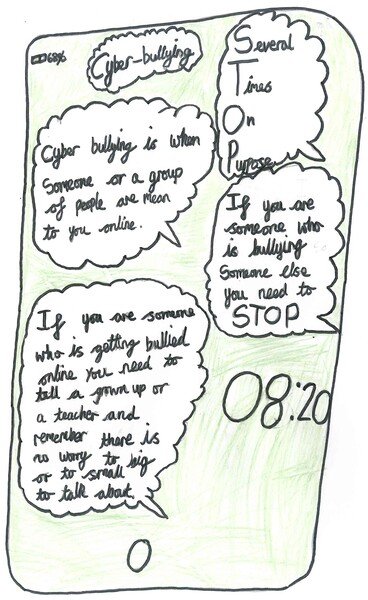 68%
Cyber-bullying
Several
Times
On
Purpose.
Cyber bullying is when
Someone or a group
of people are mean
to you online.
If you are
someone who
is bullying
Someone else
you need to
STOP
If you are someone
who is getting bullied
online you need to
tell a grown up or
a teacher and
remember there is
no worry to big
or to small
to talk about.
08:20